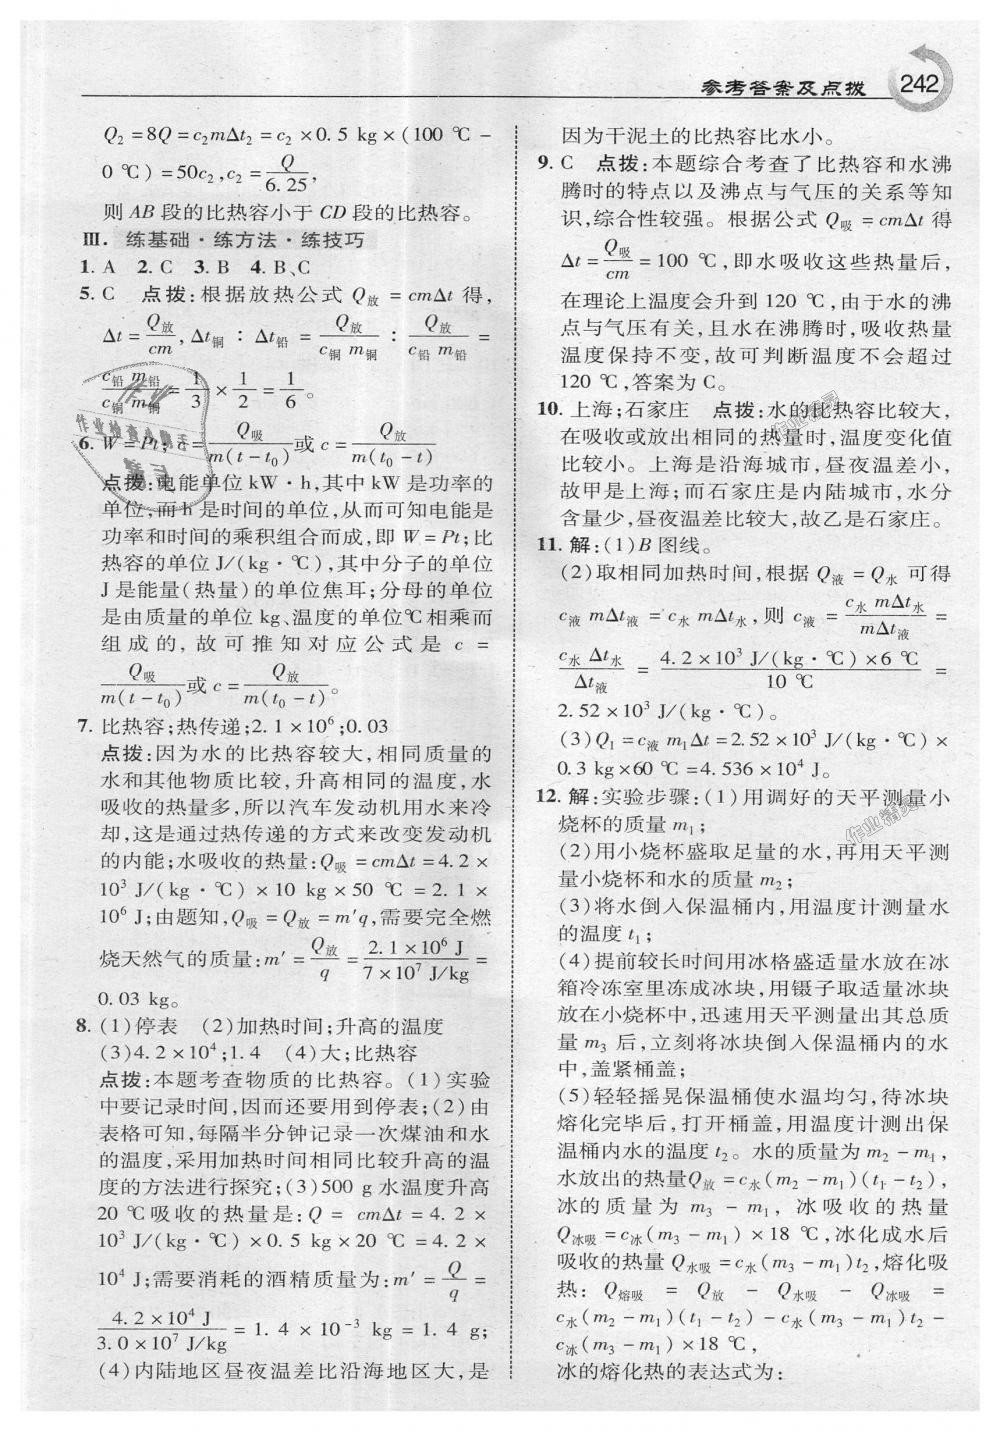 参考答案及点拨 242
Q₂=8Q=c₂mΔt₂=c₂×0.5 kg×(100 ℃-
0 ℃)=50c₂,c₂=Q/6.25,
则 AB 段的比热容小于 CD 段的比热容。
Ⅲ. 练基础·练方法·练技巧
1. A 2. C 3. B 4. B、C
5. C 点拨:根据放热公式 Q放=cmΔt 得,
Δt=Q放/cm,Δt铜:Δt铅=Q放/(c铜 m铜):Q放/(c铅 m铅)=
(c铅 m铅)/(c铜 m铜)=1/3×1/2=1/6。
6. W=Pt;c=Q吸/m(t-t₀)或 c=Q放/m(t₀-t)
点拨:电能单位 kW·h,其中 kW 是功率的
单位,而 h 是时间的单位,从而可知电能是
功率和时间的乘积组合而成,即 W=Pt;比
热容的单位 J/(kg·℃),其中分子的单位
J 是能量(热量)的单位焦耳;分母的单位
是由质量的单位 kg、温度的单位℃相乘而
组成的,故可推知对应公式是 c=
Q吸/m(t-t₀)或 c=Q放/m(t₀-t)。
7. 比热容;热传递;2.1×10⁶;0.03
点拨:因为水的比热容较大,相同质量的
水和其他物质比较,升高相同的温度,水
吸收的热量多,所以汽车发动机用水来冷
却,这是通过热传递的方式来改变发动机
的内能;水吸收的热量:Q吸=cmΔt=4.2×
10³ J/(kg·℃)×10 kg×50 ℃=2.1×
10⁶ J;由题知,Q吸=Q放=m′q,需要完全燃
烧天然气的质量:m′=Q放/q=2.1×10⁶ J/7×10⁷ J/kg=
0.03 kg。
8. (1)停表 (2)加热时间;升高的温度
(3)4.2×10⁴;1.4 (4)大;比热容
点拨:本题考查物质的比热容。(1)实验
中要记录时间,因而还要用到停表;(2)由
表格可知,每隔半分钟记录一次煤油和水
的温度,采用加热时间相同比较升高的温
度的方法进行探究;(3)500 g 水温度升高
20 ℃吸收的热量是:Q=cmΔt=4.2×
10³ J/(kg·℃)×0.5 kg×20 ℃=4.2×
10⁴ J;需要消耗的酒精质量为:m′=Q/q=
4.2×10⁴ J/3.0×10⁷ J/kg=1.4×10⁻³ kg=1.4 g;
(4)内陆地区昼夜温差比沿海地区大,是
因为干泥土的比热容比水小。
9. C 点拨:本题综合考查了比热容和水沸
腾时的特点以及沸点与气压的关系等知
识,综合性较强。根据公式 Q吸=cmΔt 得
Δt=Q吸/cm=100 ℃,即水吸收这些热量后,
在理论上温度会升到 120 ℃,由于水的沸
点与气压有关,且水在沸腾时,吸收热量
温度保持不变,故可判断温度不会超过
120 ℃,答案为 C。
10. 上海;石家庄 点拨:水的比热容比较大,
在吸收或放出相同的热量时,温度变化值
比较小。上海是沿海城市,昼夜温差小,
故甲是上海;而石家庄是内陆城市,水分
含量少,昼夜温差比较大,故乙是石家庄。
11. 解:(1)B 图线。
(2)取相同加热时间,根据 Q液=Q水 可得
c液 mΔt液=c水 mΔt水,则 c液=(c水 mΔt水)/(mΔt液)=
(c水 Δt水)/(Δt液)=4.2×10³ J/(kg·℃)×6 ℃/10 ℃=
2.52×10³ J/(kg·℃)。
(3)Q₁=c液 m₁Δt=2.52×10³ J/(kg·℃)×
0.3 kg×60 ℃=4.536×10⁴ J。
12. 解:实验步骤:(1)用调好的天平测量小
烧杯的质量 m₁;
(2)用小烧杯盛取足量的水,再用天平测
量小烧杯和水的质量 m₂;
(3)将水倒入保温桶内,用温度计测量水
的温度 t₁;
(4)提前较长时间用冰格盛适量水放在冰
箱冷冻室里冻成冰块,用镊子取适量冰块
放在小烧杯中,迅速用天平测量出其总质
量 m₃ 后,立刻将冰块倒入保温桶内的水
中,盖紧桶盖;
(5)轻轻摇晃保温桶使水温均匀,待冰块
熔化完毕后,打开桶盖,用温度计测出保
温桶内水的温度 t₂。水的质量为 m₂-m₁,
水放出的热量Q放=c水(m₂-m₁)(t₁-t₂),
冰的质量为 m₃-m₁,冰吸收的热量
Q冰吸=c冰(m₃-m₁)×18 ℃,冰化成水后
吸收的热量 Q水吸=c水(m₃-m₁)t₂,熔化吸
热:Q熔吸=Q放-Q水吸-Q冰吸=
c水(m₂-m₁)(t₁-t₂)-c水(m₃-m₁)t₂-
c冰(m₃-m₁)×18 ℃,
冰的熔化热的表达式为: